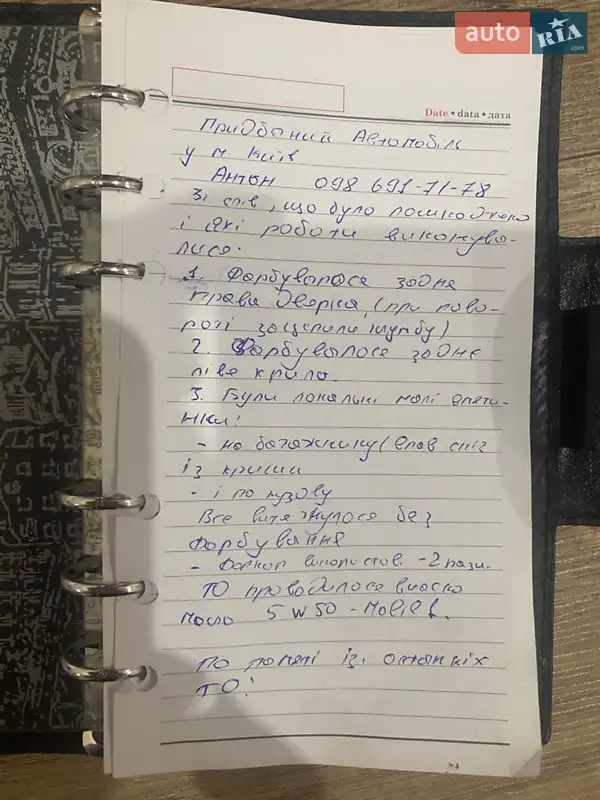 auto RIA .com
Date • data • дата
Придбаний Автомобіль
у м Київ
Антон 098 691-71-78
Зі слів, що було пошкоджено
і які роботи виконува-
лися.
1. Фарбувалося задня
права дверка, (при пово-
роті зацепили клумбу)
2. Фарбувалося заднє
ліве крило.
3. Були локальні малі вмяти-
нки:
- на багажнику (впав сніг
із криши
- і по кузову
Все витягнулося без
фарбування
- Фаркоп використов. - 2 рази.
ТО проводилося вчасно
масло 5W50 - Mobil 1.
по из останніх
ТО!